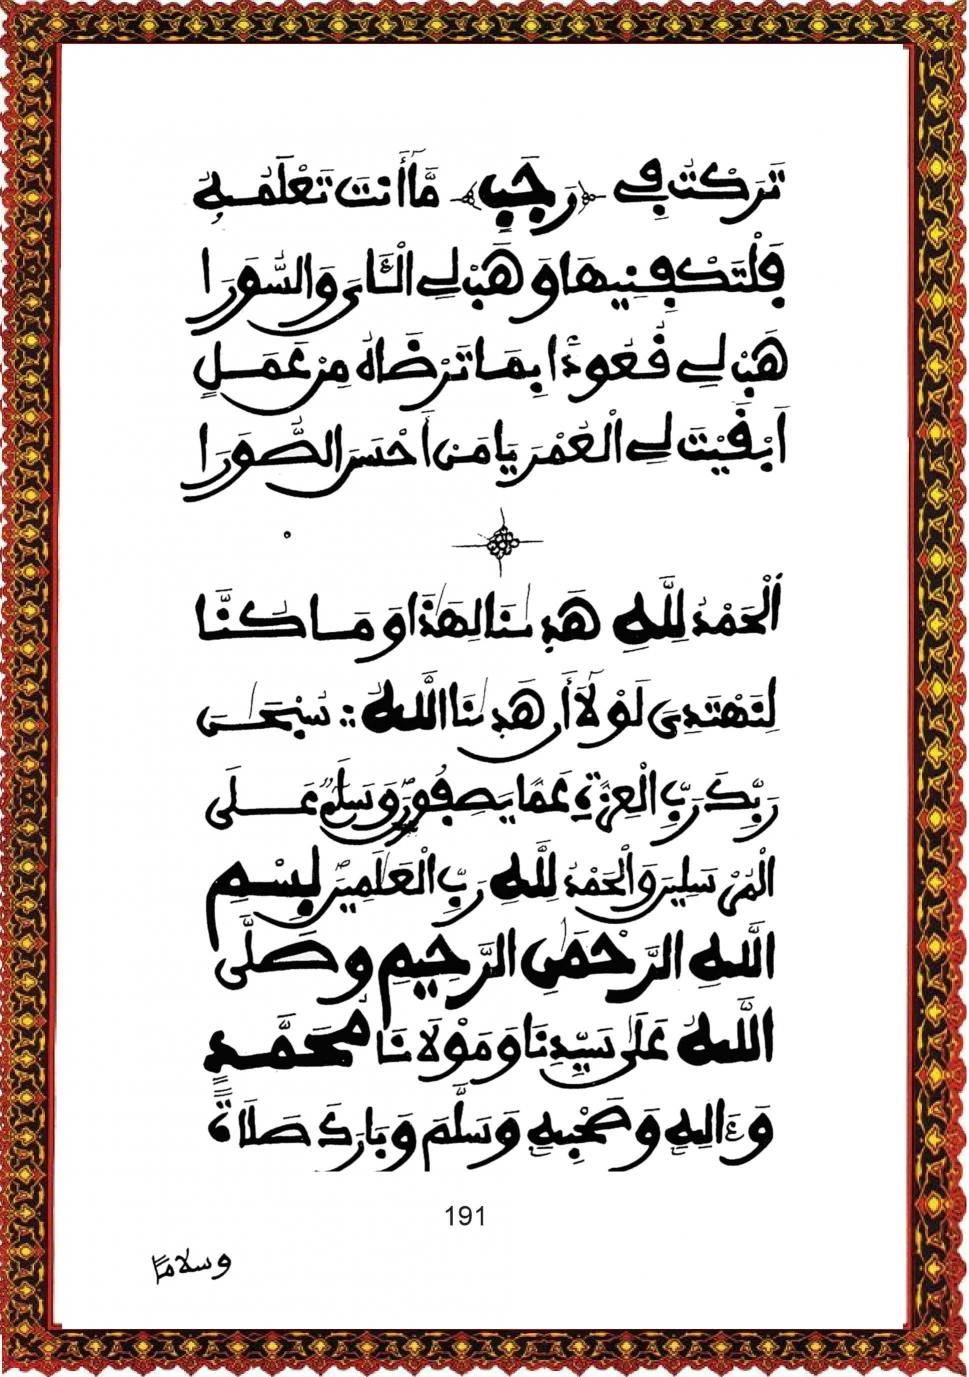 تَرَكْتُ فِي رَجَبٍ مَّا أَنتَ تَعْلَمُهُ
فَلْتَكْفِنِيهَا وَهَبْ لِي الْآيَ وَالسُّوَرَا
هَبْ لِي قُعُودًا بِمَا تَرْضَاهُ مِنْ عَمَلٍ
أَبْقَيْتَ لِي الْعُمْرَ يَا مَنْ أَحْسَنَ الصُّوَرَا
اَلْحَمْدُ لِلَّهِ هَدِىٰنَا لِهَٰذَا وَمَا كُنَّا
لِنَهْتَدِيَ لَوْلَا أَنْ هَدِىٰنَا اللَّهُ ∴ سُبْحَٰنَ
رَبِّكَ رَبِّ الْعِزَّةِ عَمَّا يَصِفُونَ وَسَلَٰمٌ عَلَى
الْمُرْسَلِينَ وَالْحَمْدُ لِلَّهِ رَبِّ الْعَٰلَمِينَ بِسْمِ
اللَّهِ الرَّحْمَٰنِ الرَّحِيمِ وَصَلَّى
اللَّهُ عَلَى سَيِّدِنَا وَمَوْلَانَا مُحَمَّدٍ
وَءَالِهِ وَصَحْبِهِ وَسَلَّمَ وَبَارَكَ صَلَاةً
191
وسلاماً